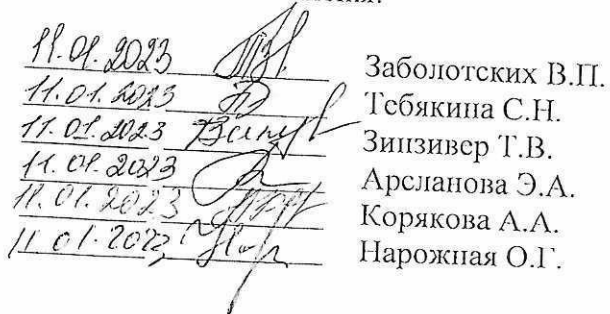 11.01.2023 Заболотских В.П.
11.01.2023 Тебякина С.Н.
11.01.2023 Зинзивер Т.В.
11.01.2023 Арсланова Э.А.
11.01.2023 Корякова А.А.
11.01.2023 Нарожная О.Г.